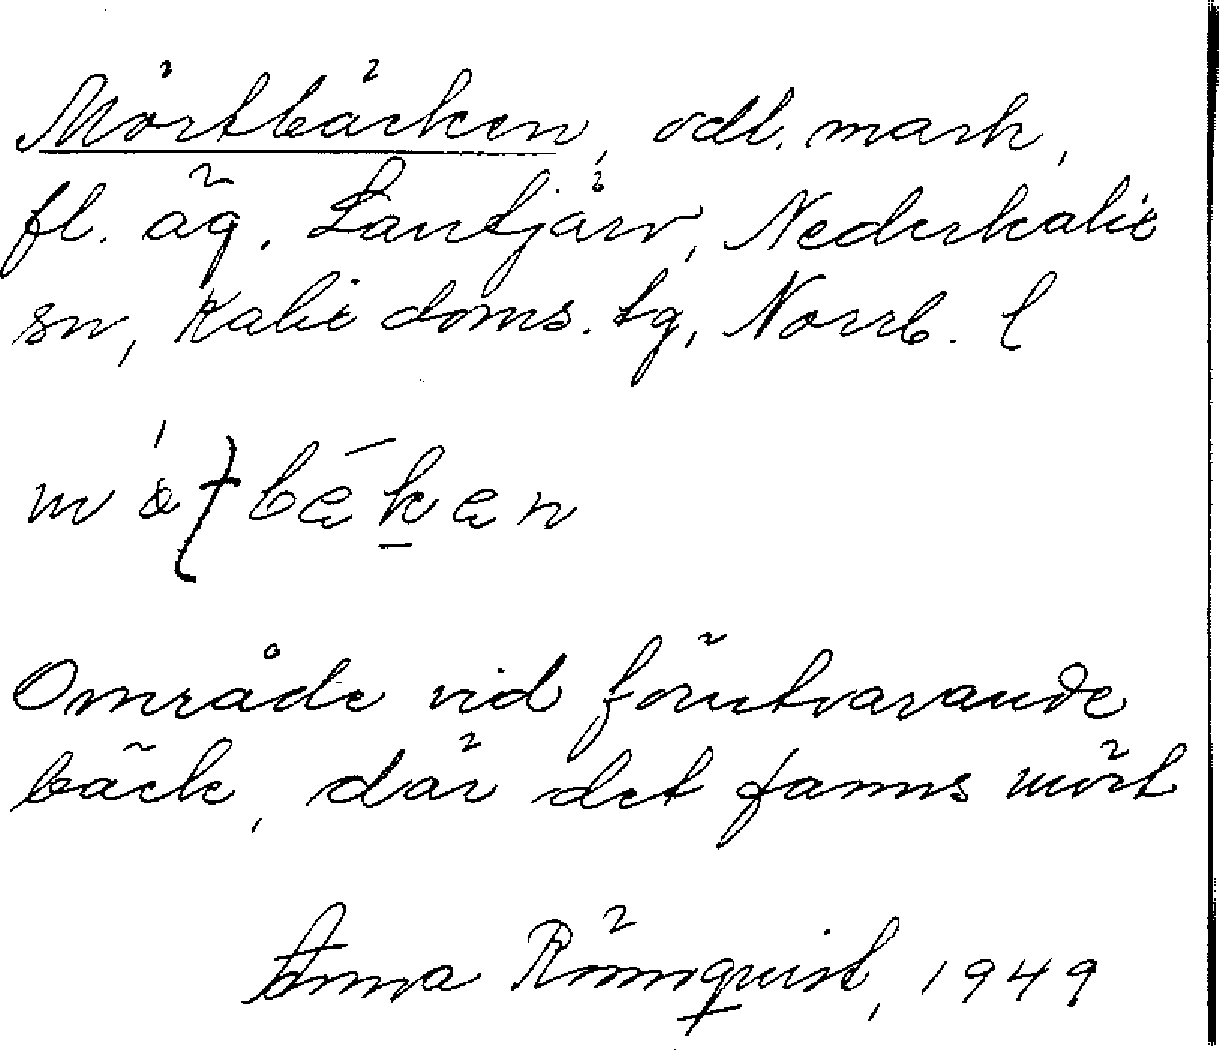 Mörtbäcken, odl. mark,
fl. äg. Lantjärv, Nederkalix
sn, Kalix doms. tg, Norrb. l
Område vid förutvarande
bäck, där det fanns mört
Anna Rönnquist, 1949